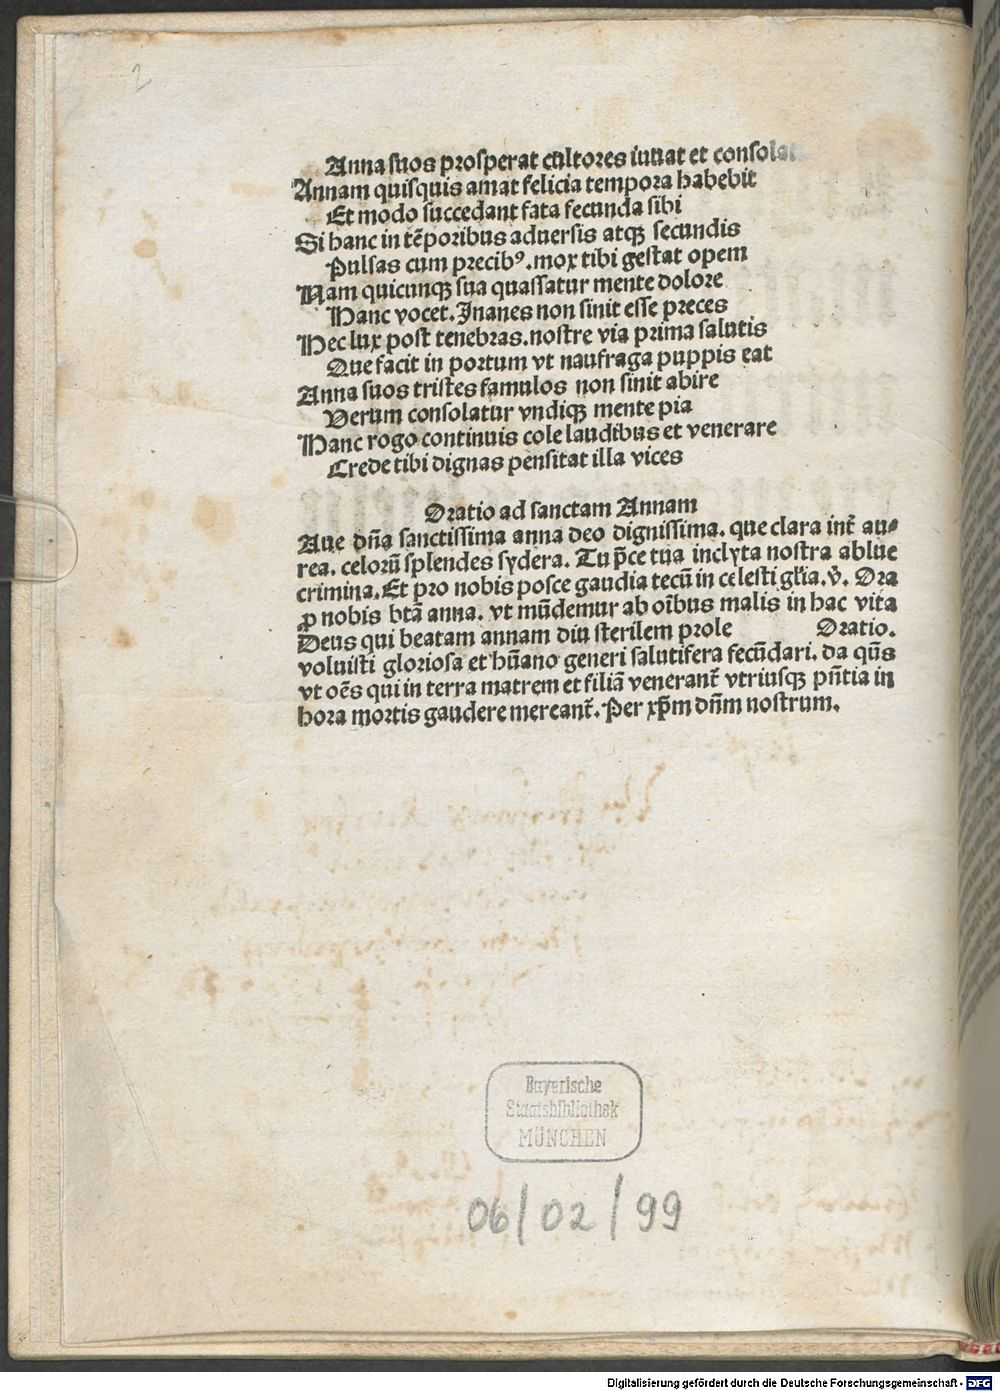 2
Anna suos prosperat cultores iuuat et consolat
Annam quisquis amat felicia tempora habebit
Et modo succedant fata fecunda sibi
Si hanc in tẽporibus aduersis atqꝫ secundis
Pulsas cum precibꝰ. mox tibi gestat opem
Nam quicunqꝫ sua quassatur mente dolore
Hanc vocet. Inanes non sinit esse preces
Hec lux post tenebras. nostre via prima salutis
Que facit in portum vt naufraga puppis eat
Anna suos tristes famulos non sinit abire
Verum consolatur vndiqꝫ mente pia
Hanc rogo continuis cole laudibus et venerare
Crede tibi dignas pensitat illa vices
Oratio ad sanctam Annam
Aue dña sanctissima anna deo dignissima. que clara int̃ au⸗
rea. celorũ splendes sydera. Tu p̃ce tua inclyta nostra ablue
crimina. Et pro nobis posce gaudia tecũ in celesti gl̃ia. v̉. Ora
ꝓ nobis btã anna. vt mũdemur ab oĩbus malis in hac vita
Deus qui beatam annam diu sterilem prole Oratio.
voluisti gloriosa et hũano generi salutifera fecũdari. da qũs
vt oẽs qui in terra matrem et filiã venerant̃ vtriusqꝫ pñtia in
hora mortis gaudere mereant̃. Per xp̃m dñm nostrum.
Bayerische
Staatsbibliothek
MÜNCHEN
06/02/99
Digitalisierung gefördert durch die Deutsche Forschungsgemeinschaft - DFG